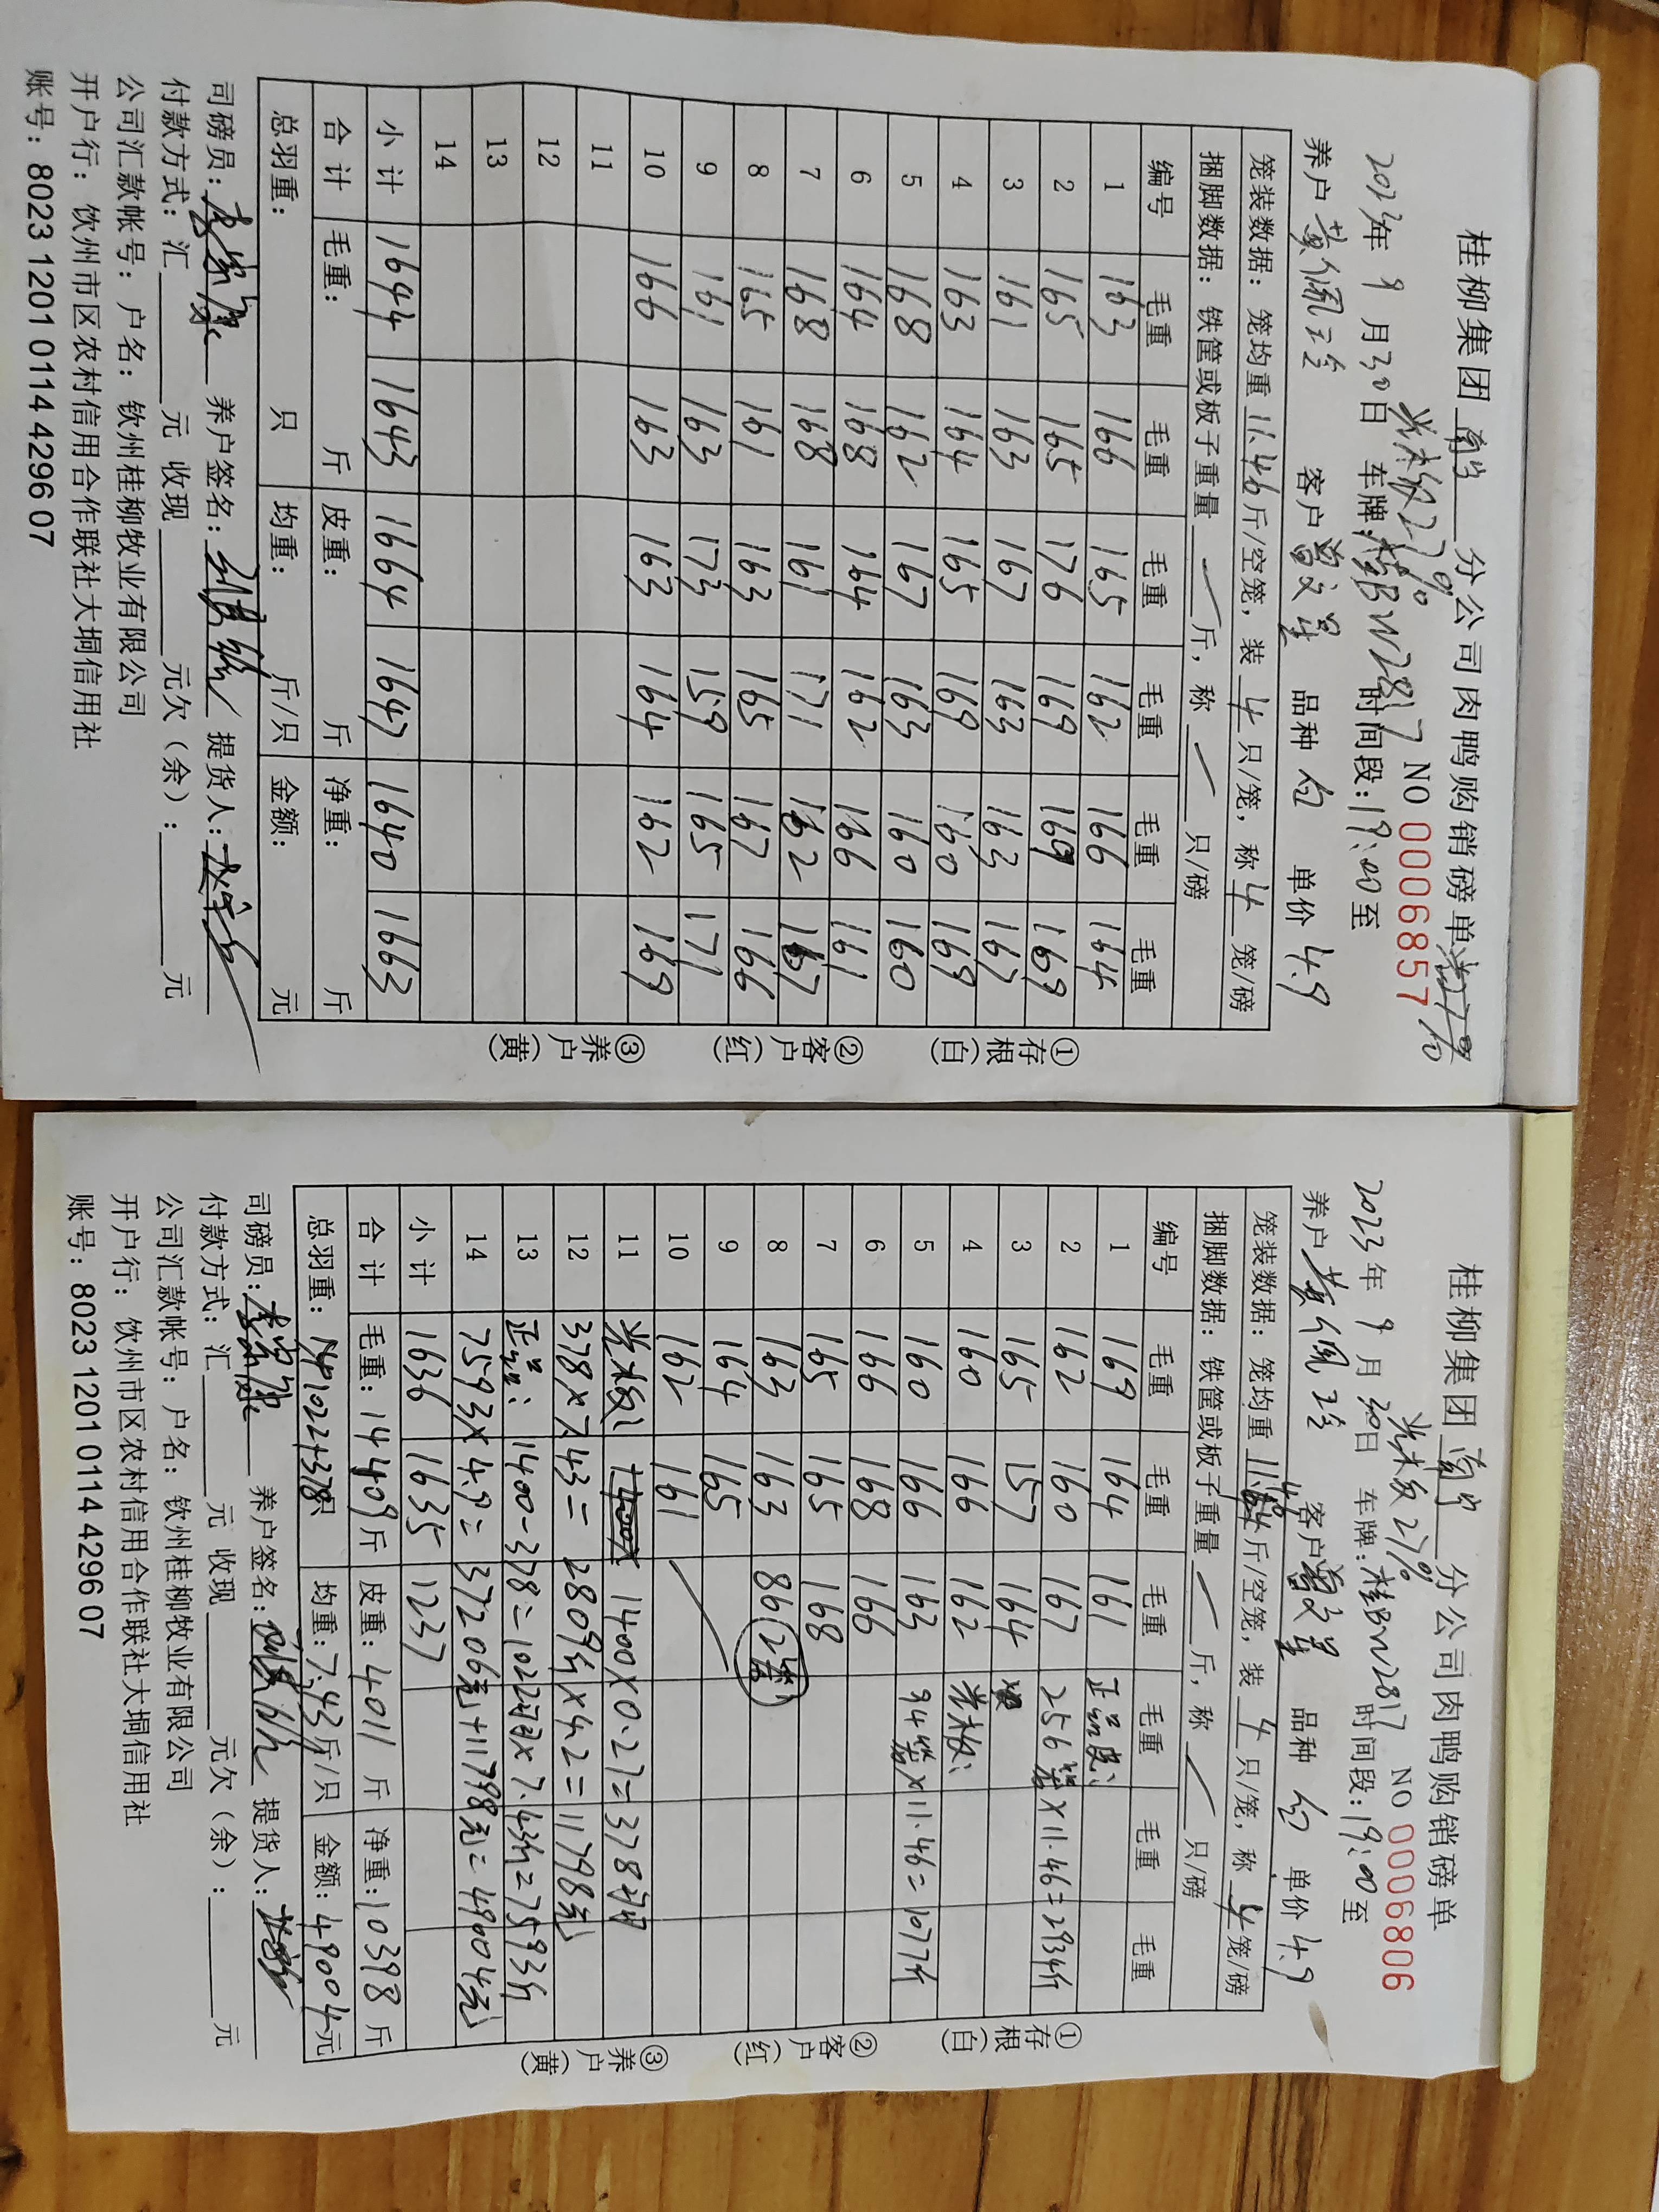 桂柳集团 南宁 分公司肉鸭购销磅单
光板27%
2023年 9 月 30 日 车牌:桂BW2817 NO 0006857
时间段:19:00至
养户 黄佩玲 客户 曾文星 品种 白 单价 4.9
笼装数据: 笼均重 11.46 斤/空笼, 装 4 只/笼, 称 4 笼/磅
捆脚数据: 铁筐或板子重量 / 斤, 称 / 只/磅
编号 毛重 毛重 毛重 毛重 毛重 毛重
1 163 166 165 162 166 164
2 165 165 176 169 169 169
3 161 163 167 163 163 167
4 163 164 165 169 160 169
5 168 162 167 163 160 160
6 164 168 164 162 166 161
7 168 168 161 171 162 167
8 165 161 163 165 167 166
9 161 163 173 159 165 171
10 166 163 163 164 162 169
11
12
13
14
小计 1644 1643 1664 1647 1640 1663
合计 毛重: 斤 皮重: 斤 净重: 斤
总羽重: 只 均重: 斤/只 金额: 元
司磅员: 养户签名: 提货人:
付款方式: 汇 元 收现 元欠(余): 元
公司汇款帐号: 户名: 钦州桂柳牧业有限公司
开户行: 钦州市区农村信用合作联社大垌信用社
账号: 8023 1201 0114 4296 07
①存根(白)
②客户(红)
③养户(黄)
桂柳集团 南宁 分公司肉鸭购销磅单
光板27%
2023年 9 月 30日 车牌:桂BW2817 NO 0006806
时间段:19:00至
养户 黄佩玲 客户 曾文星 品种 白 单价 4.9
笼装数据: 笼均重 11.46 斤/空笼, 装 4 只/笼, 称 4 笼/磅
捆脚数据: 铁筐或板子重量 / 斤, 称 / 只/磅
编号 毛重 毛重 毛重 毛重 毛重 毛重
1 169 164 161 正品皮:
2 162 160 167 256笼×11.46=2934斤
3 165 157 164
4 160 166 162 光板:
5 160 166 163 94笼×11.46=1077斤
6 166 168 166
7 165 165 168
8 163 163 86(2笼)
9 164 165
10 162 161
11 光板: 1400×0.27=378羽
12 378×7.43=2809斤×4.2=11798元
13 正品: 1400-378=1022羽×7.43斤=7593斤
14 7593×4.9=37206元+11798元=49004元
小计 1636 1635 1237
合计 毛重: 14409 斤 皮重: 4011 斤 净重: 10398 斤
总羽重: 1022+378只 均重: 7.43斤/只 金额: 49004元
司磅员: 养户签名: 提货人:
付款方式: 汇 元 收现 元欠(余): 元
公司汇款帐号: 户名: 钦州桂柳牧业有限公司
开户行: 钦州市区农村信用合作联社大垌信用社
账号: 8023 1201 0114 4296 07
①存根(白)
②客户(红)
③养户(黄)